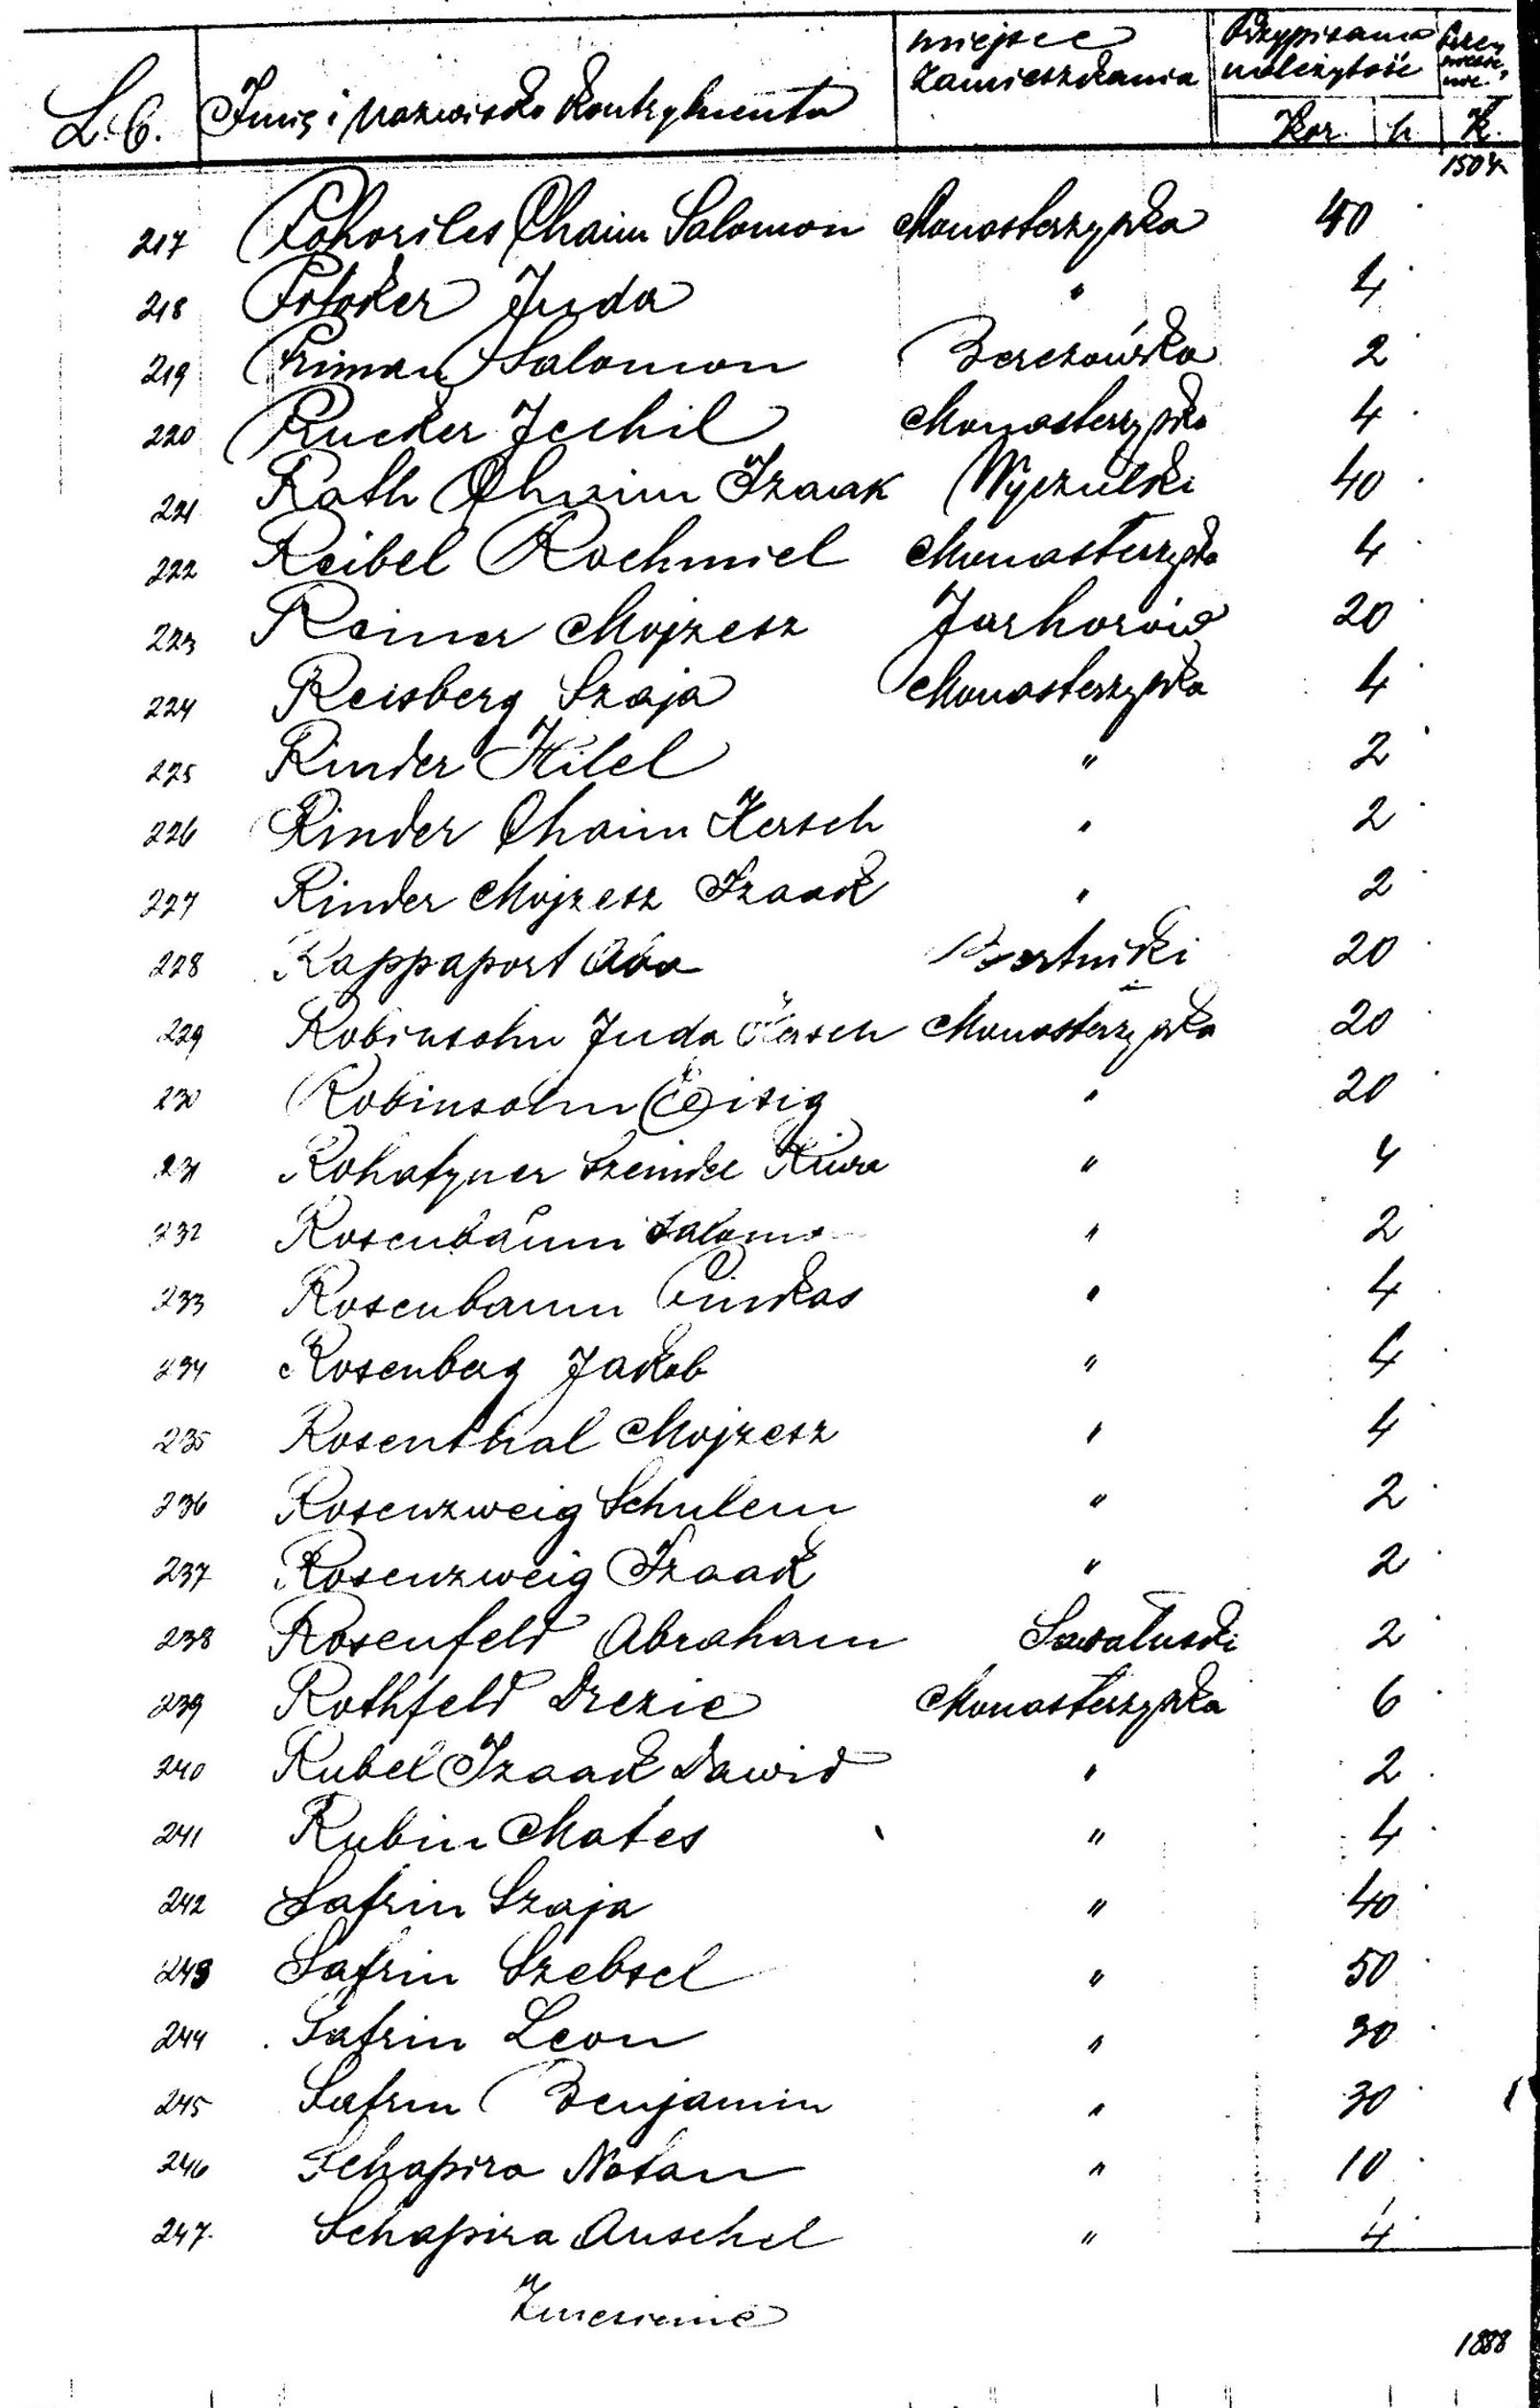 L.C. Imię i Nazwisko Kontrybuenta miejsce zamieszkania Przypisana należytość
Kor. h K.
1504
217 Pohoriles Chaim Salomon Monasterzyska 40
218 Potoker Juda " 4
219 Priman Salomon Berezówka 2
220 Pucker Jechil Monasterzyska 4
221 Rath Chaim Izaak Wyczulki 40
222 Reibel Rachmiel Monasterzyska 4
223 Reiner Mojzesz Jarhorów 20
224 Reisberg Szaja Monasterzyska 4
225 Rinder Hilel " 2
226 Rinder Chaim Hersch " 2
227 Rinder Mojzesz Izaak " 2
228 Rappaport Aba 20
229 Robinsohn Juda Hersch Monasterzyska 20
230 Robinsohn Eisig " 20
231 Rohatyner Szeindel " 4
232 Rosenbaum Salomo " 2
233 Rosenbaum Pinkas " 4
234 Rosenberg Jakob " 4
235 Rosenthal Mojzesz " 4
236 Rosenzweig Schulem " 2
237 Rosenzweig Izaak " 2
238 Rosenfeld Abraham Sawałuski 2
239 Rothfeld Drezie Monasterzyska 6
240 Rubel Izaak Dawid " 2
241 Rubin Mates " 4
242 Safrin Szaja " 40
243 Safrin Szebsel " 50
244 Safrin Leon " 30
245 Safrin Benjamin " 30
246 Schapira Natan " 10
247 Schapira Anschel " 4
Zniesienie
1888